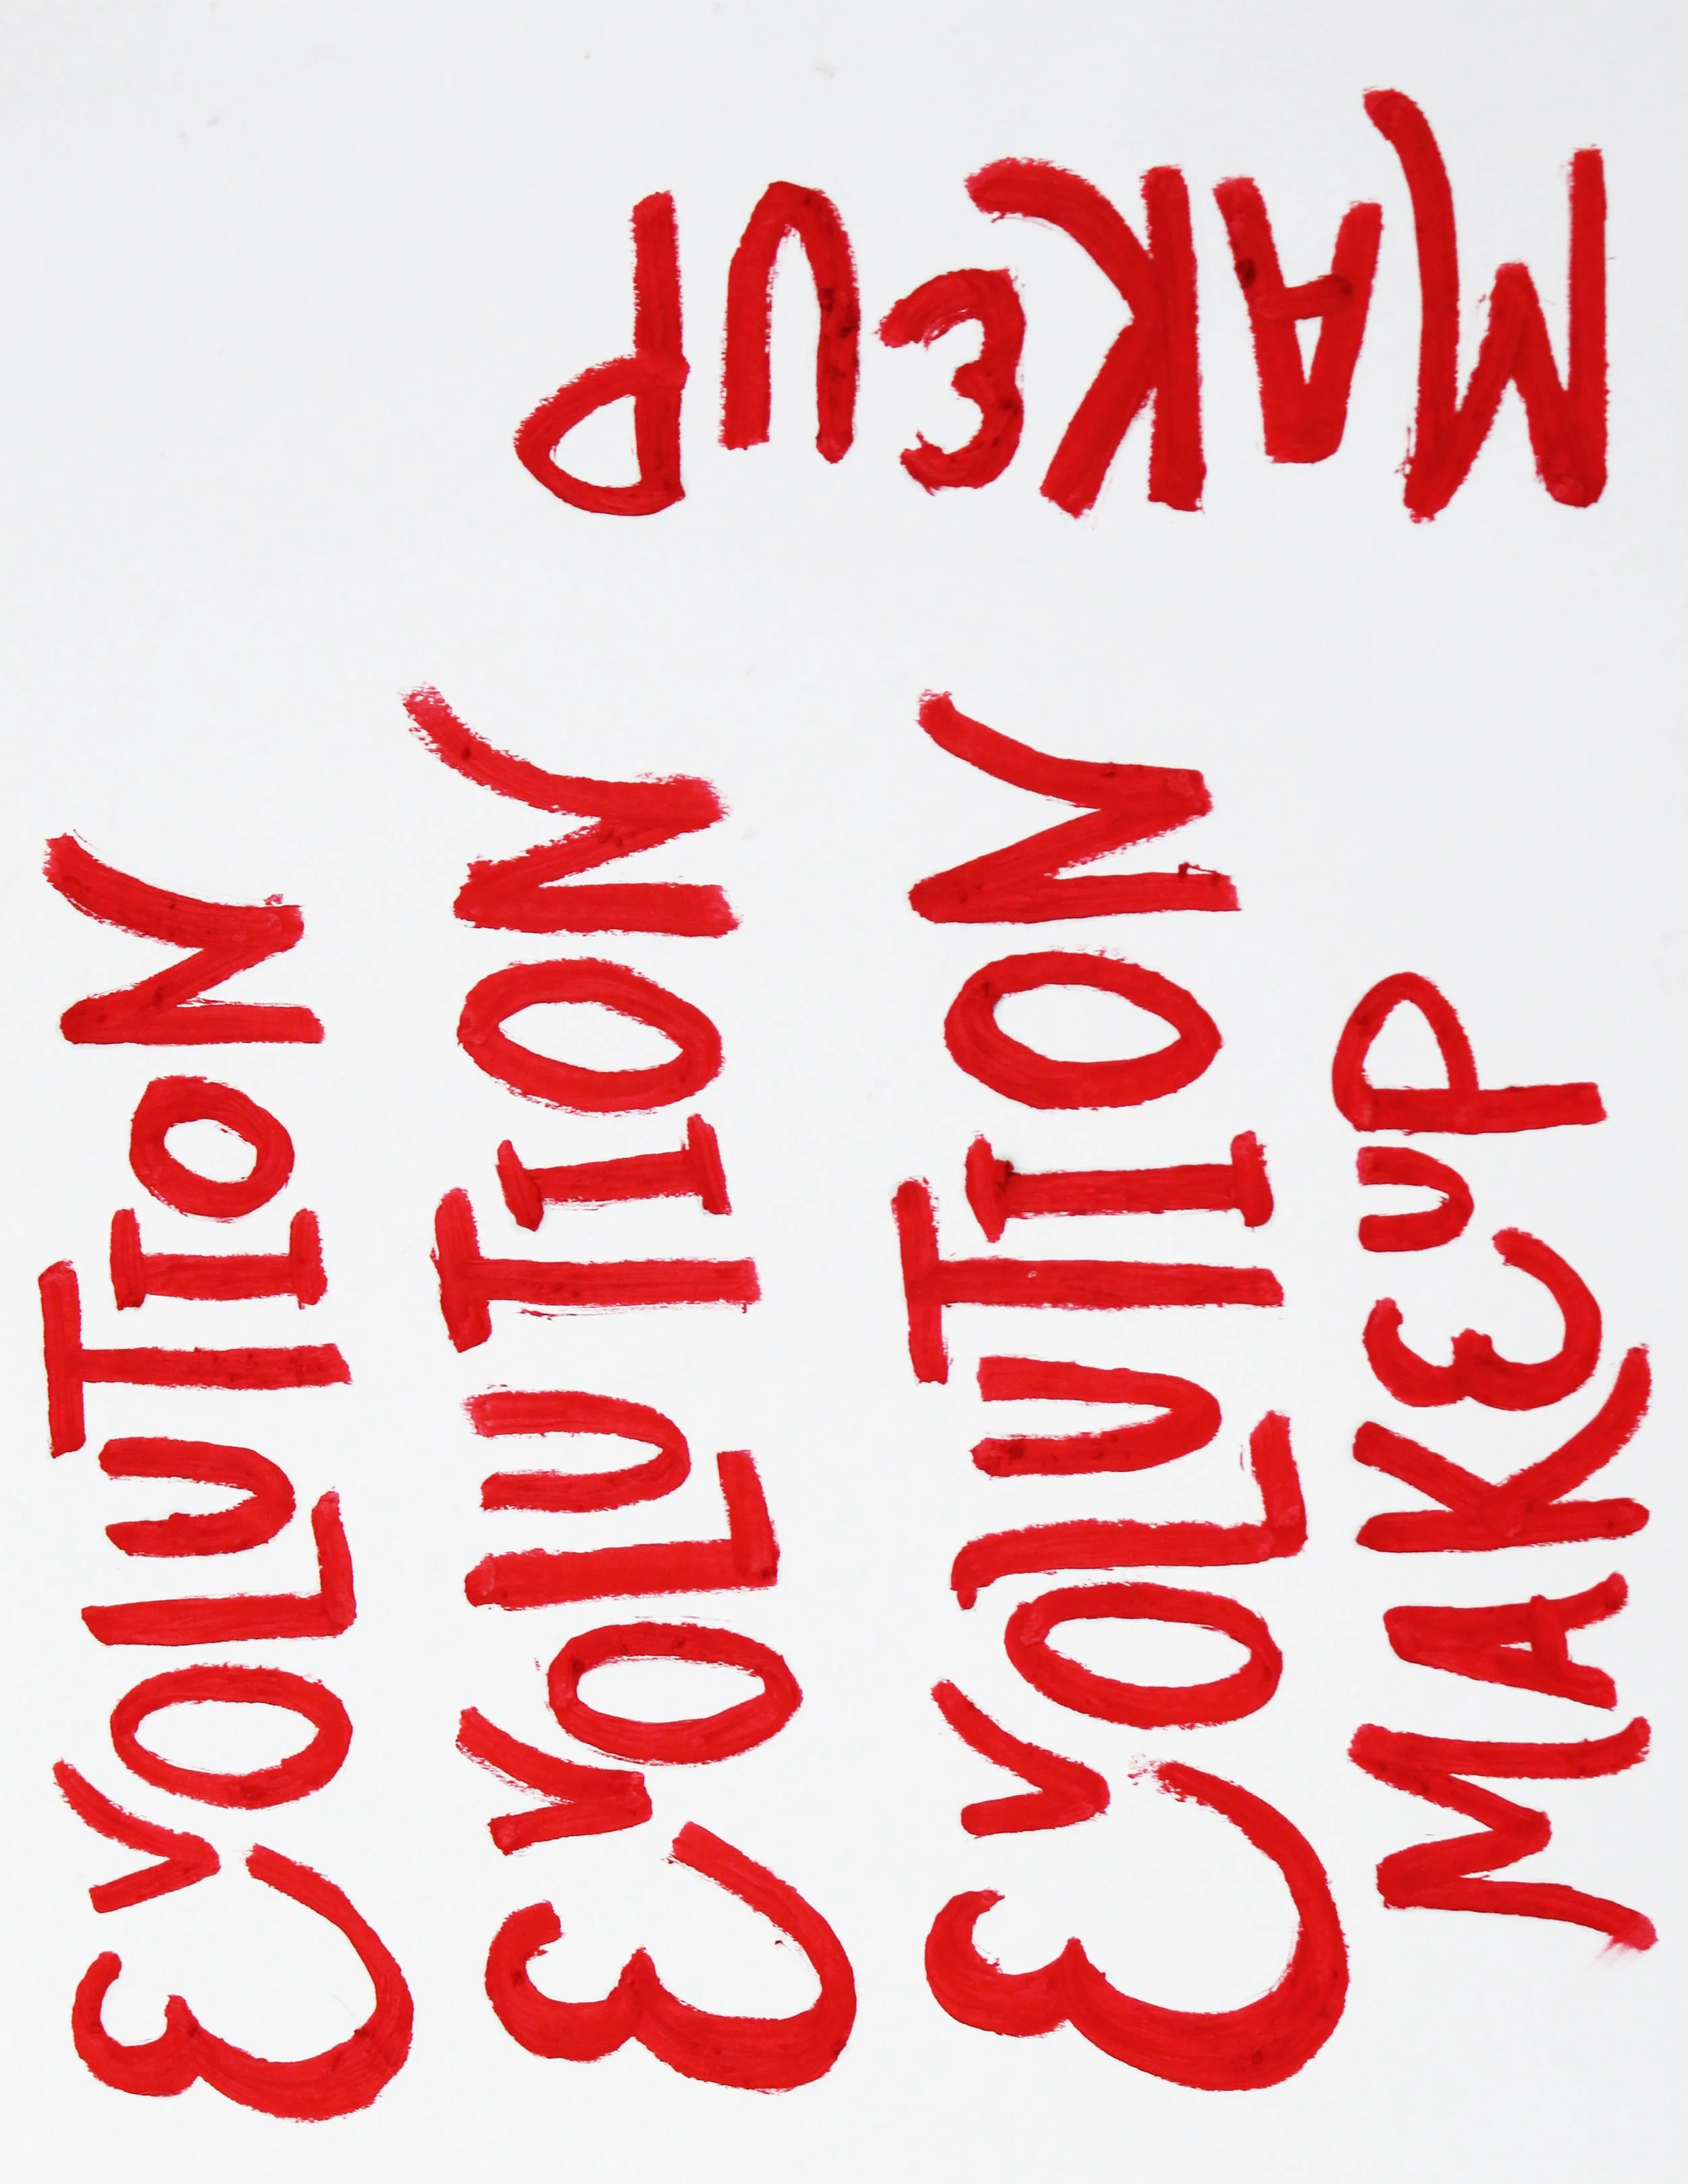 MAKEUP
EVOLUTION
EVOLUTION
EVOLUTION
MAKEUP